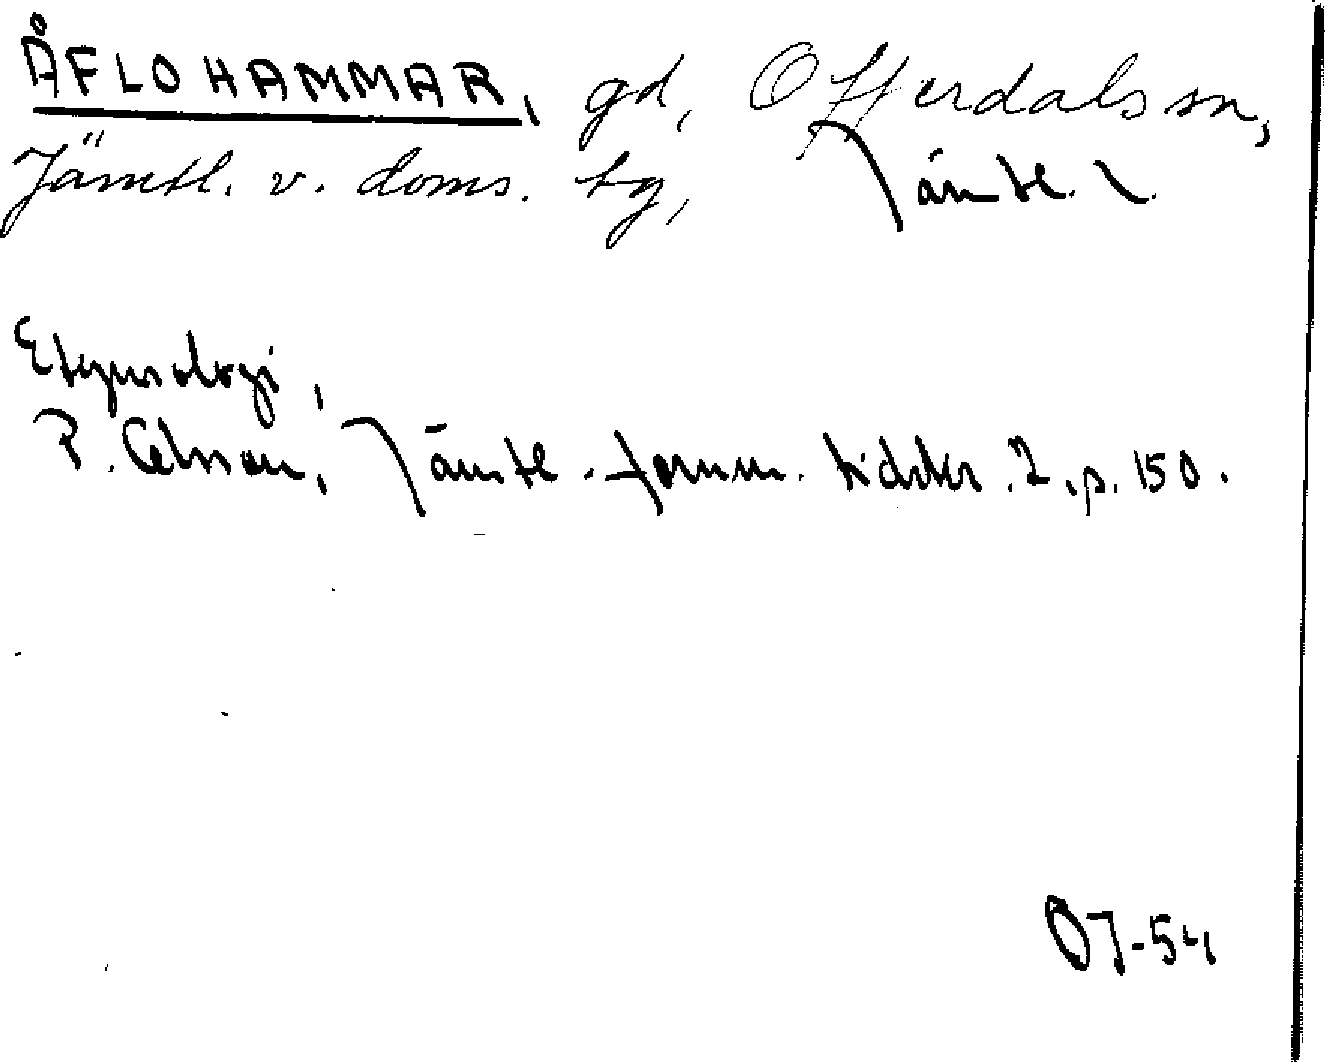 ÅFLOHAMMAR, gd, Offerdals sn,
Jämtl. v. doms. tg, Jämtl. l.
Etymologi,
P. Olsson, Jämtl. fornm. tidskr. 2, p. 150.
OJ-54